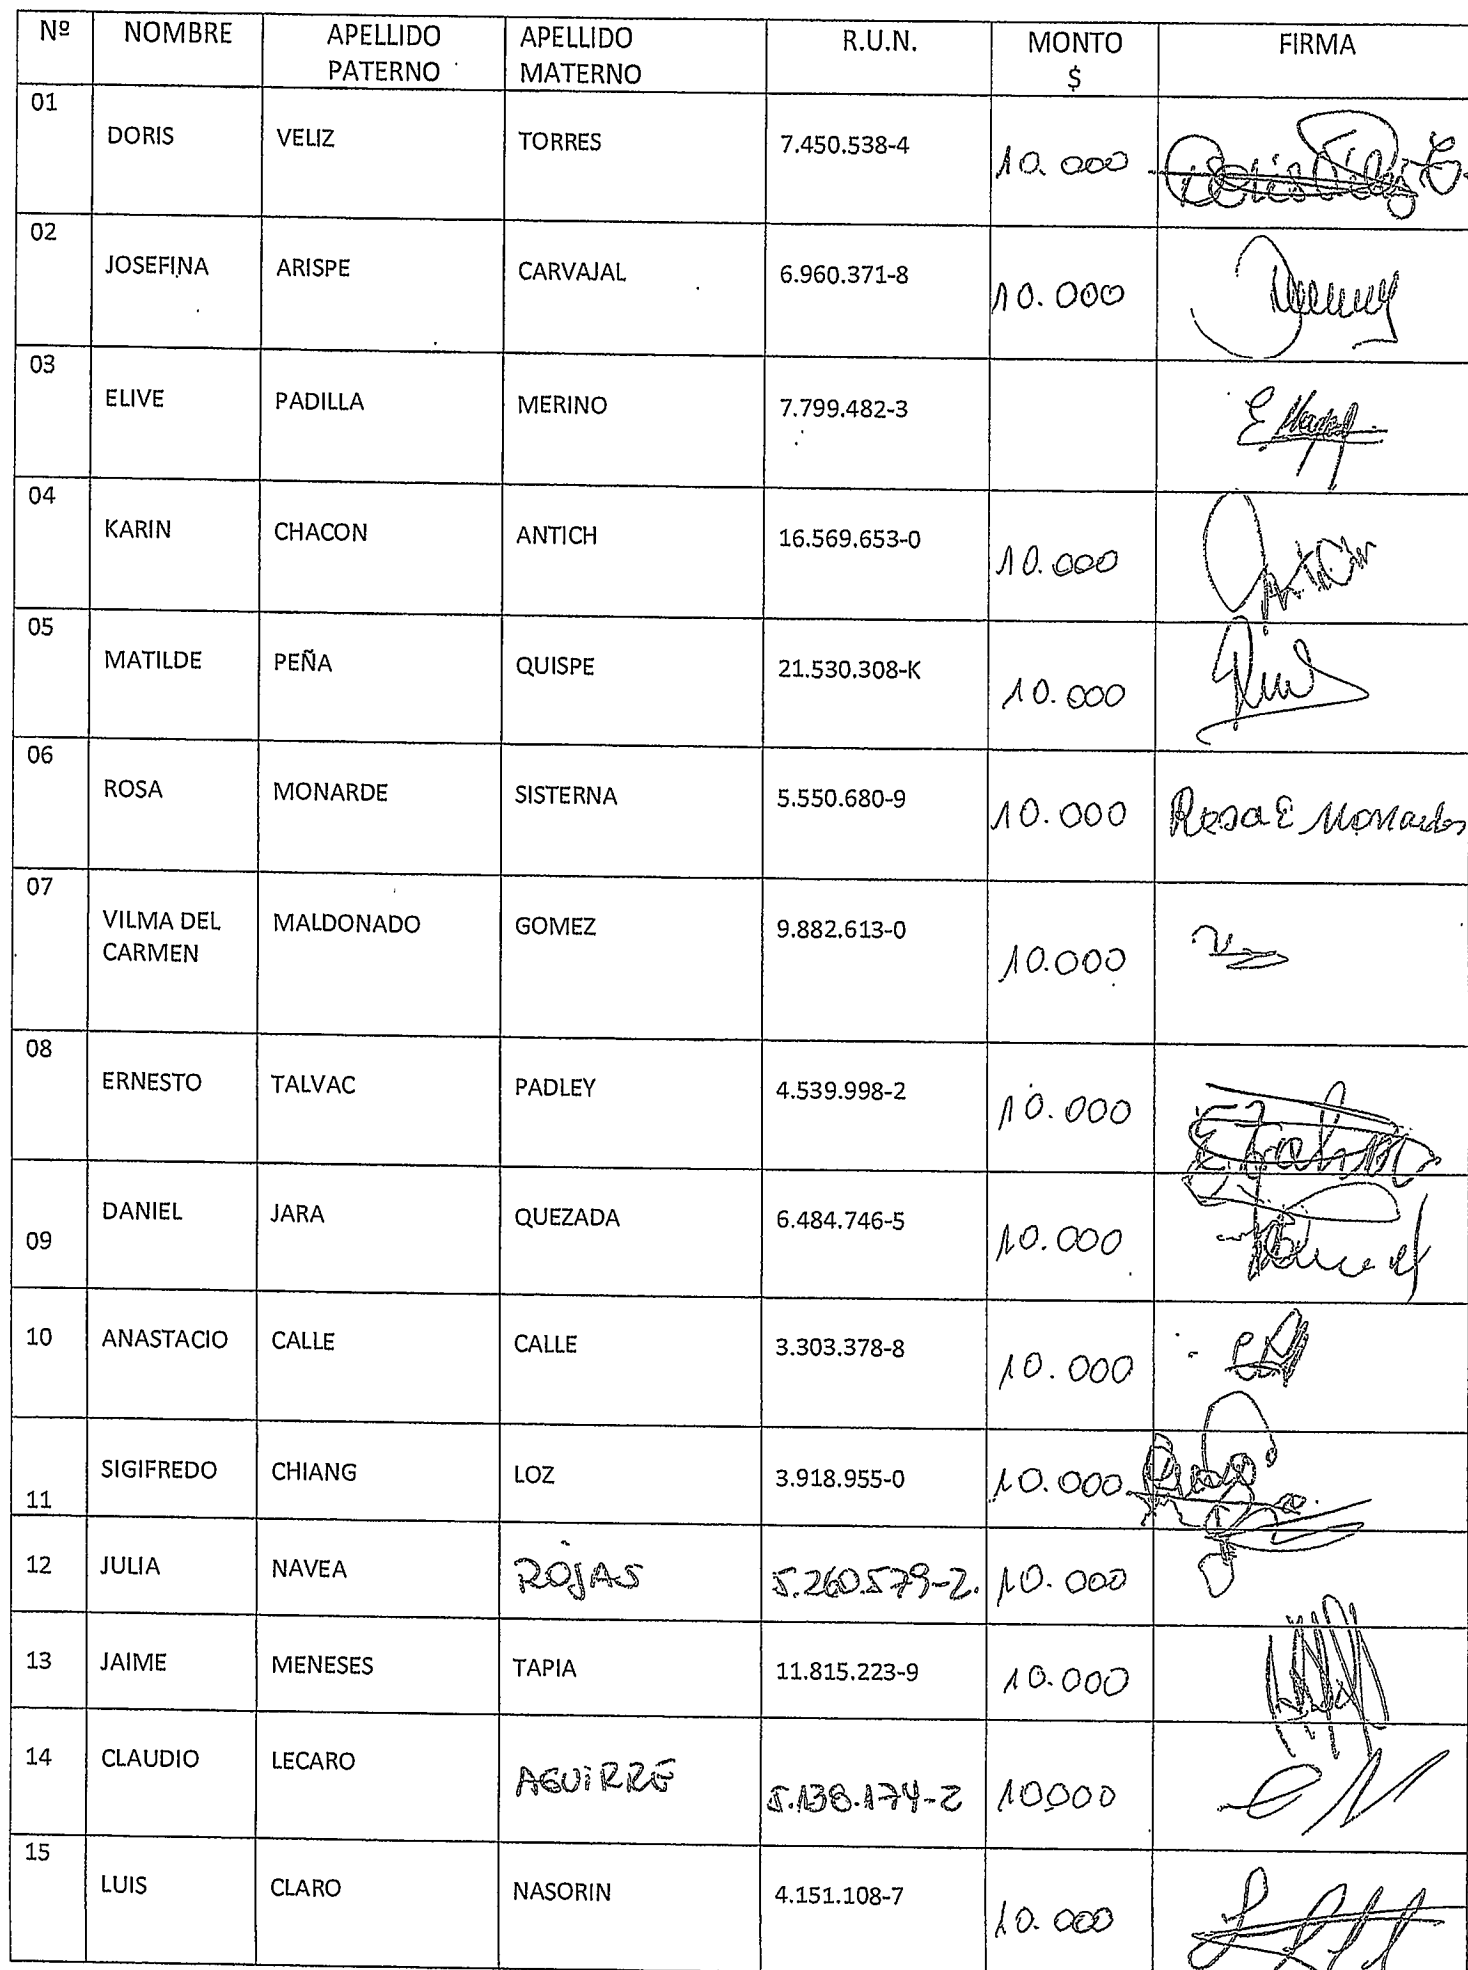 Nº NOMBRE APELLIDO PATERNO APELLIDO MATERNO R.U.N. MONTO $ FIRMA
01 DORIS VELIZ TORRES 7.450.538-4 10.000
02 JOSEFINA ARISPE CARVAJAL 6.960.371-8 10.000
03 ELIVE PADILLA MERINO 7.799.482-3
04 KARIN CHACON ANTICH 16.569.653-0 10.000
05 MATILDE PEÑA QUISPE 21.530.308-K 10.000
06 ROSA MONARDE SISTERNA 5.550.680-9 10.000 Rosa E
07 VILMA DEL CARMEN MALDONADO GOMEZ 9.882.613-0 10.000
08 ERNESTO TALVAC PADLEY 4.539.998-2 10.000
09 DANIEL JARA QUEZADA 6.484.746-5 10.000
10 ANASTACIO CALLE CALLE 3.303.378-8 10.000
11 SIGIFREDO CHIANG LOZ 3.918.955-0 10.000
12 JULIA NAVEA ROJAS 5.260.579-2. 10.000
13 JAIME MENESES TAPIA 11.815.223-9 10.000
14 CLAUDIO LECARO AGUIRRE 5.138.174-2 10000
15 LUIS CLARO NASORIN 4.151.108-7 10.000